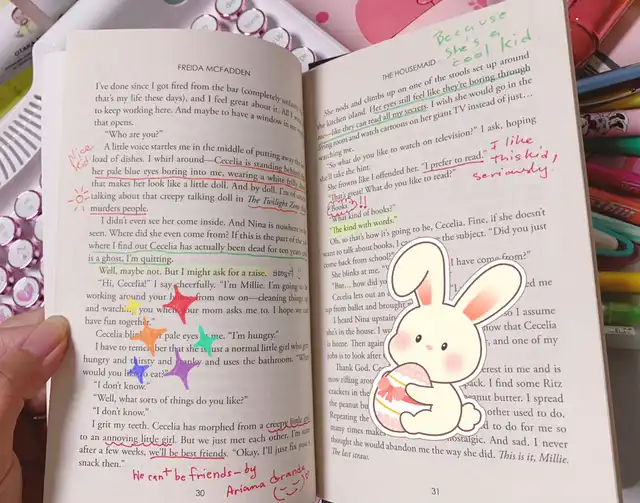 FREIDA MCFADDEN
I've done since I got fired from the bar (completely
that's my life these days), and I feel great about it. All I
to keep working here. And maybe to have a window in my
that opens.
"Who are you?"
A little voice startles me in the middle of putting away the
load of dishes. I whirl around—Cecelia is standing behind
her pale blue eyes boring into me, wearing a white frilly
that makes her look like a little doll. And by doll, I'm
talking about that creepy talking doll in The Twilight Zone
murders people.
Nice
kid
I didn't even see her come inside. And Nina is nowhere to
seen. Where did she even come from? If this is the part of the
where I find out Cecelia has actually been dead for ten years
is a ghost, I'm quitting.
Well, maybe not. But I might ask for a raise.
"Hi, Cecelia!" I say cheerfully. "I'm Millie. I'm going to
working around your from now on—cleaning things
and watch you when your mom asks me to. I hope we can
have fun together."
Cecelia blin pale eyes me. "I'm hungry."
I have to remember that she is just a normal little girl who gets
hungry and thirsty and cranky and uses the bathroom. "What
would you like to eat?"
"I don't know."
"Well, what sorts of things do you like?"
"I don't know."
I grit my teeth. Cecelia has morphed from a creepy little girl
to an annoying little girl. But we just met each other. I'm
after a few weeks, we'll be best friends. "Okay, I'll just fix
snack then."
30
We can't be friends – by
Ariana Grande
Because
she's a
cool kid.
THE HOUSEMAID
She nods and climbs up on one of the stools set up around
the kitchen island. Her eyes still feel like they're boring through
me—like they can read all my secrets. I wish she would go in the
living room and watch cartoons on her giant TV instead of just...
watching me.
"So what do you like to watch on television?" I ask, hoping
she'll take the hint.
She frowns like I offended her. "I prefer to read."
"That's great! What do you like to read?"
"Books."
"What kind of books?"
"The kind with words."
I like
this kid,
seriously.
Oh, so that's how it's going to be, Cecelia. Fine, if she doesn't
want to talk about books, I can change the subject. "Did you just
come back from school?"
She blinks at me. have I come from?"
"But... how did
Cecelia lets out an
up from ballet and brought me
I heard Nina upstair so I assume
she's in the house. I w know that Cecelia
is home. Then again and one of my
jobs is to look after
Thank God, Cec terest in me and is
now rifling aroun pack. I find some Ritz
crackers in the peanut butter. I spread
the peanut bu other used to do.
Repeating the to do for me so
many times makes nostalgic. And sad. I never
thought she would abandon me the way she did. This is it, Millie.
The last straw.
31